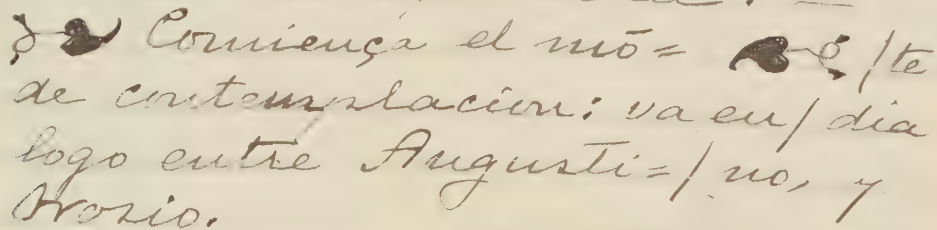 Comiença el mō= /te
de contemplacion: va en/ dia
logo entre Augusti=/no, y
Orosio.